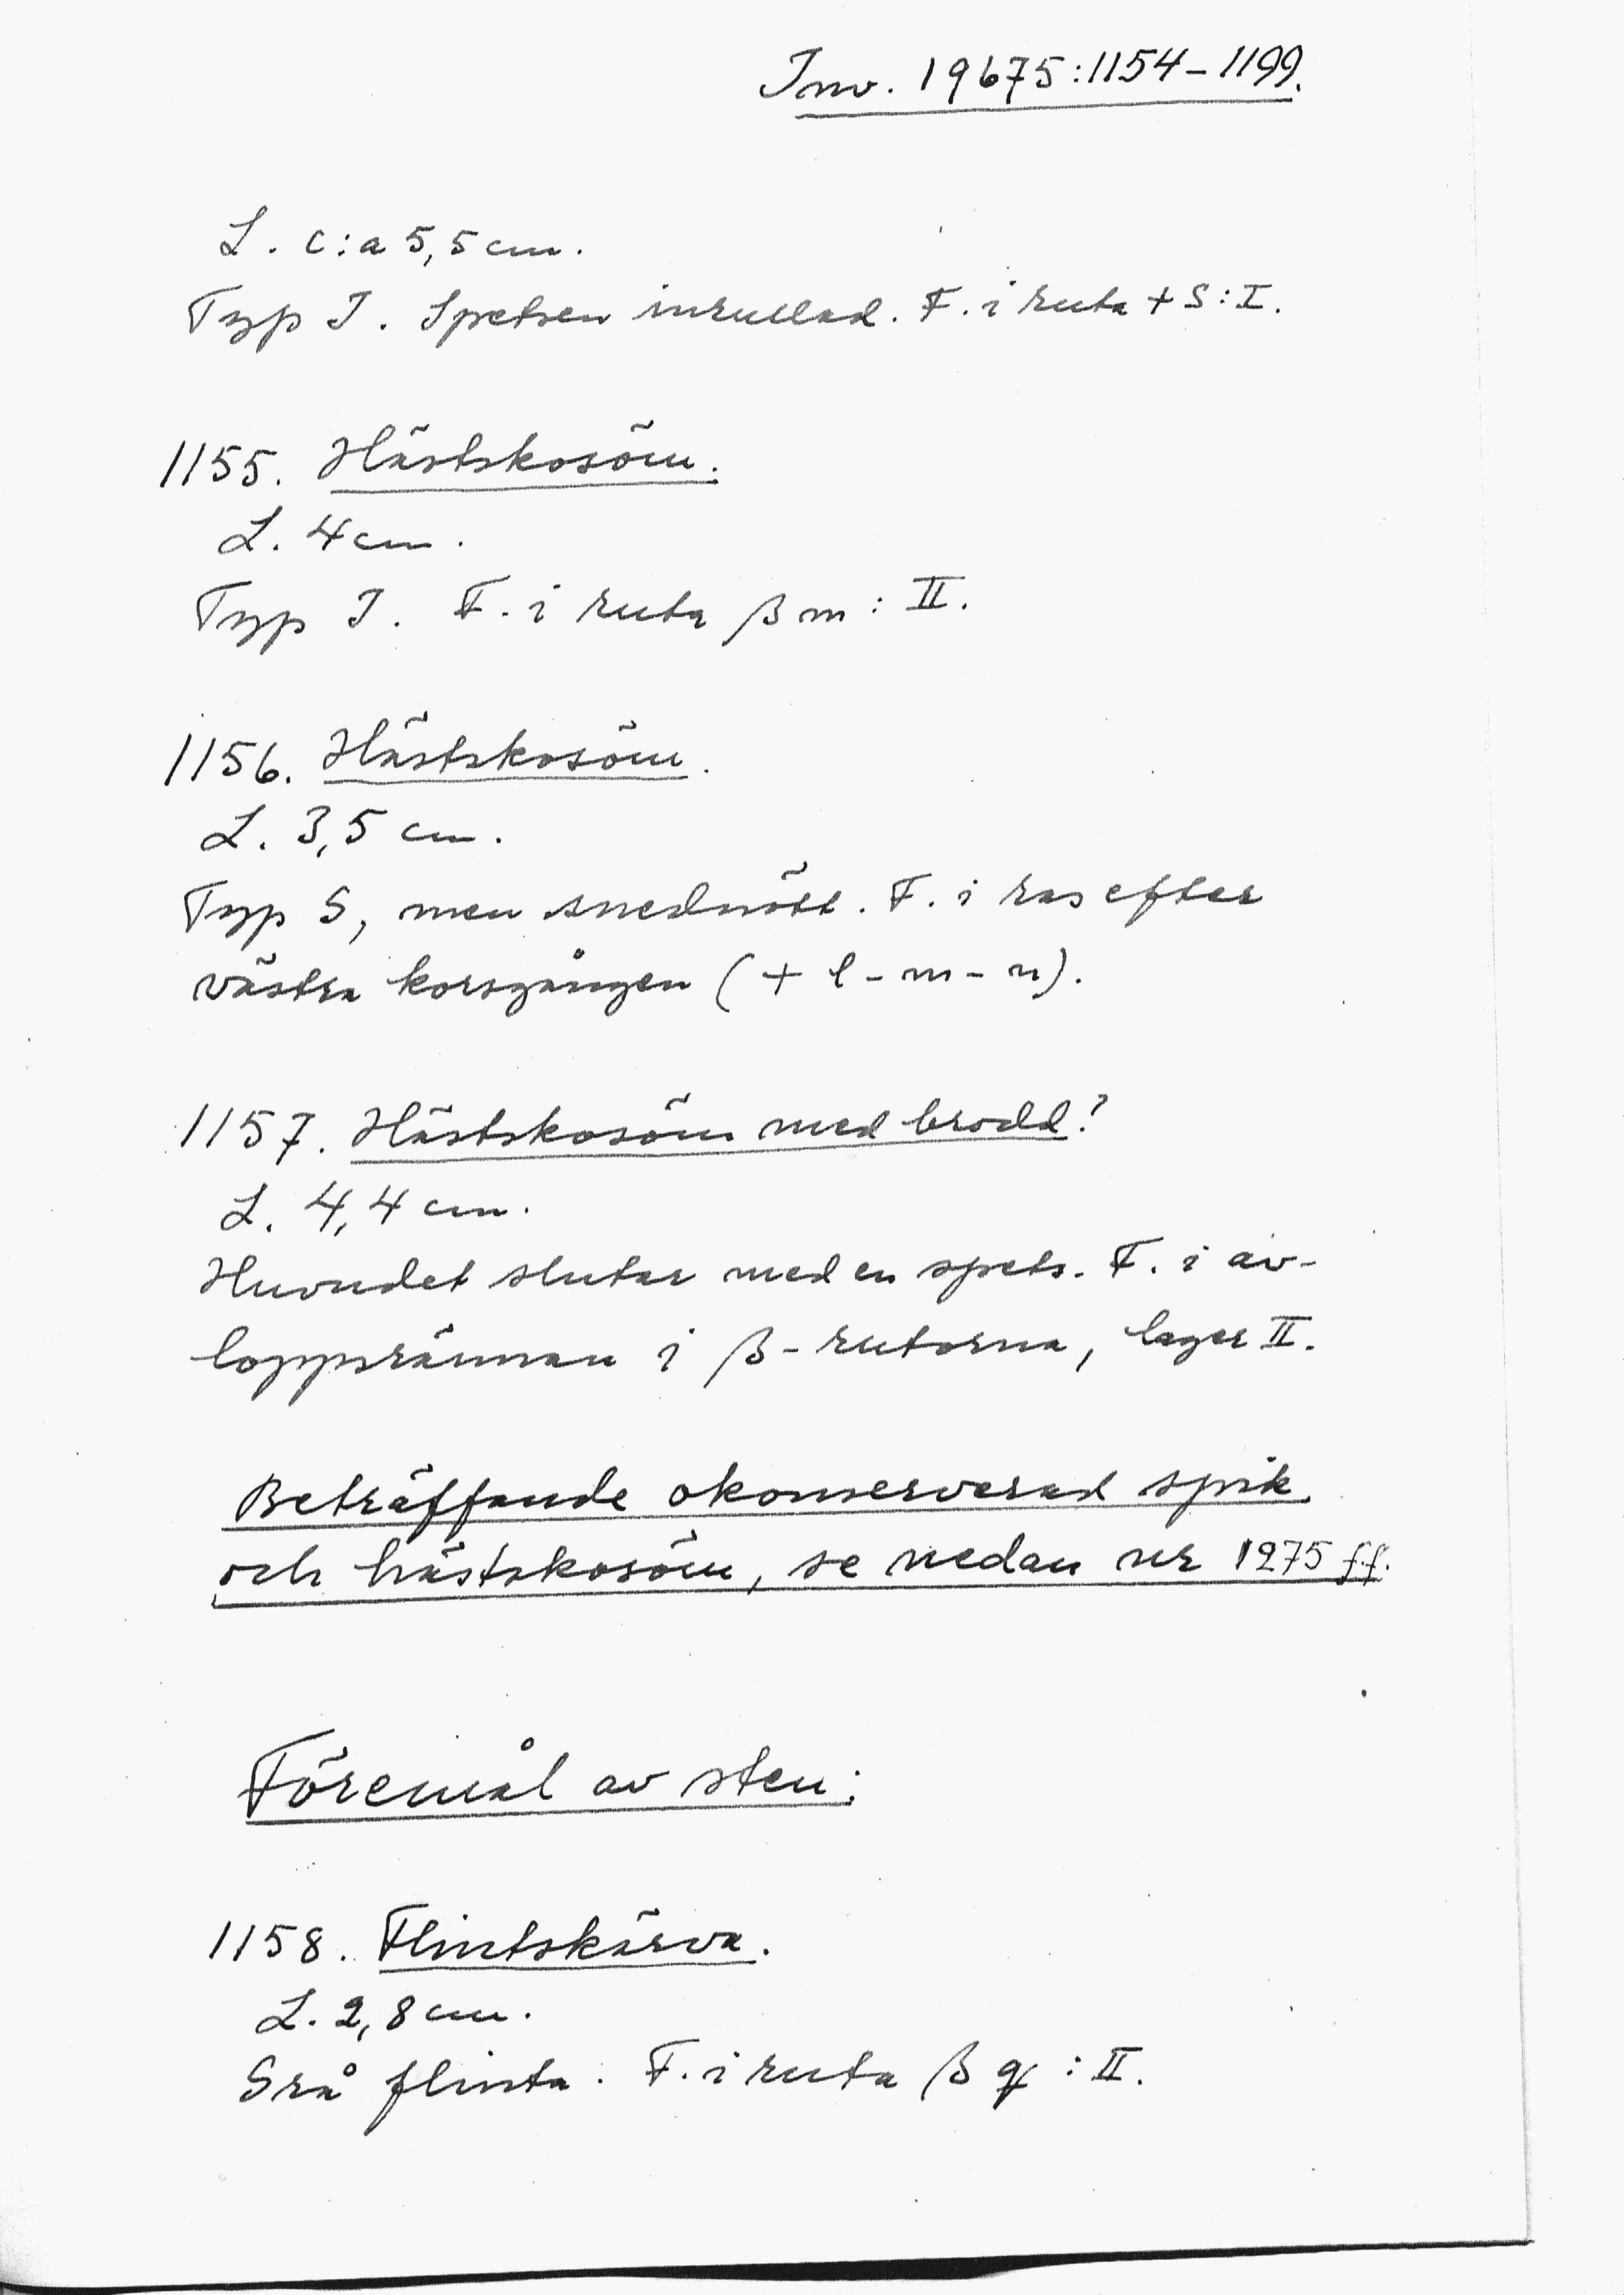 Inv. 19675:1154-1199.
L. c:a 5,5 cm.
Typ I. Spetsen inrullad. F. i ruta + S:I.
1155. Hästskosöm.
L. 4 cm.
Typ I. F. i ruta β m : II.
1156. Hästskosöm.
L. 3,5 cm.
Typ S, men snednött. F. i ras efter
västra korsgången (+ l - m - n).
1157. Hästskosöm med brodd?
L. 4,4 cm.
Huvudet slutar med en spets. F. i av-
loppsrännan i β-rutorna, lager II.
Beträffande okonserverad spik
och hästskosöm, se nedan nr 1275 ff.
Föremål av sten:
1158. Flintskärva.
L. 2,8 cm.
Grå flinta. F. i ruta β q : II.